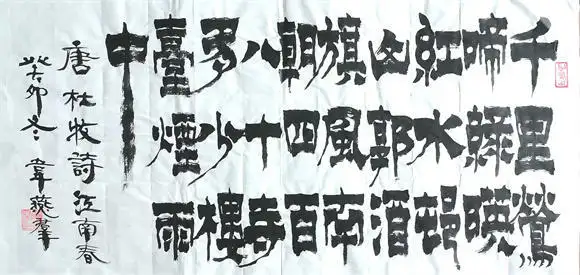 千里鶯
啼綠映
紅水邨
山郭酒
旗風南
朝四百
八十寺
多少樓
臺煙雨
中
唐杜牧詩江南春
癸卯冬韋羣